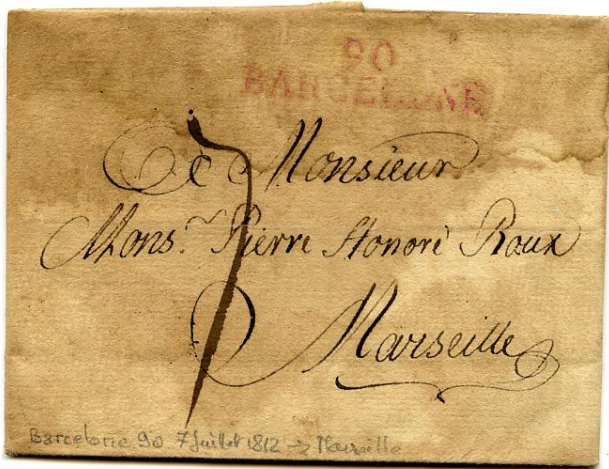 90
BARCELONE
A Monsieur
Mons.r Pierre Honoré Roux
7
Marseille
Barcelone 90 7 Juillet 1812 → Marseille